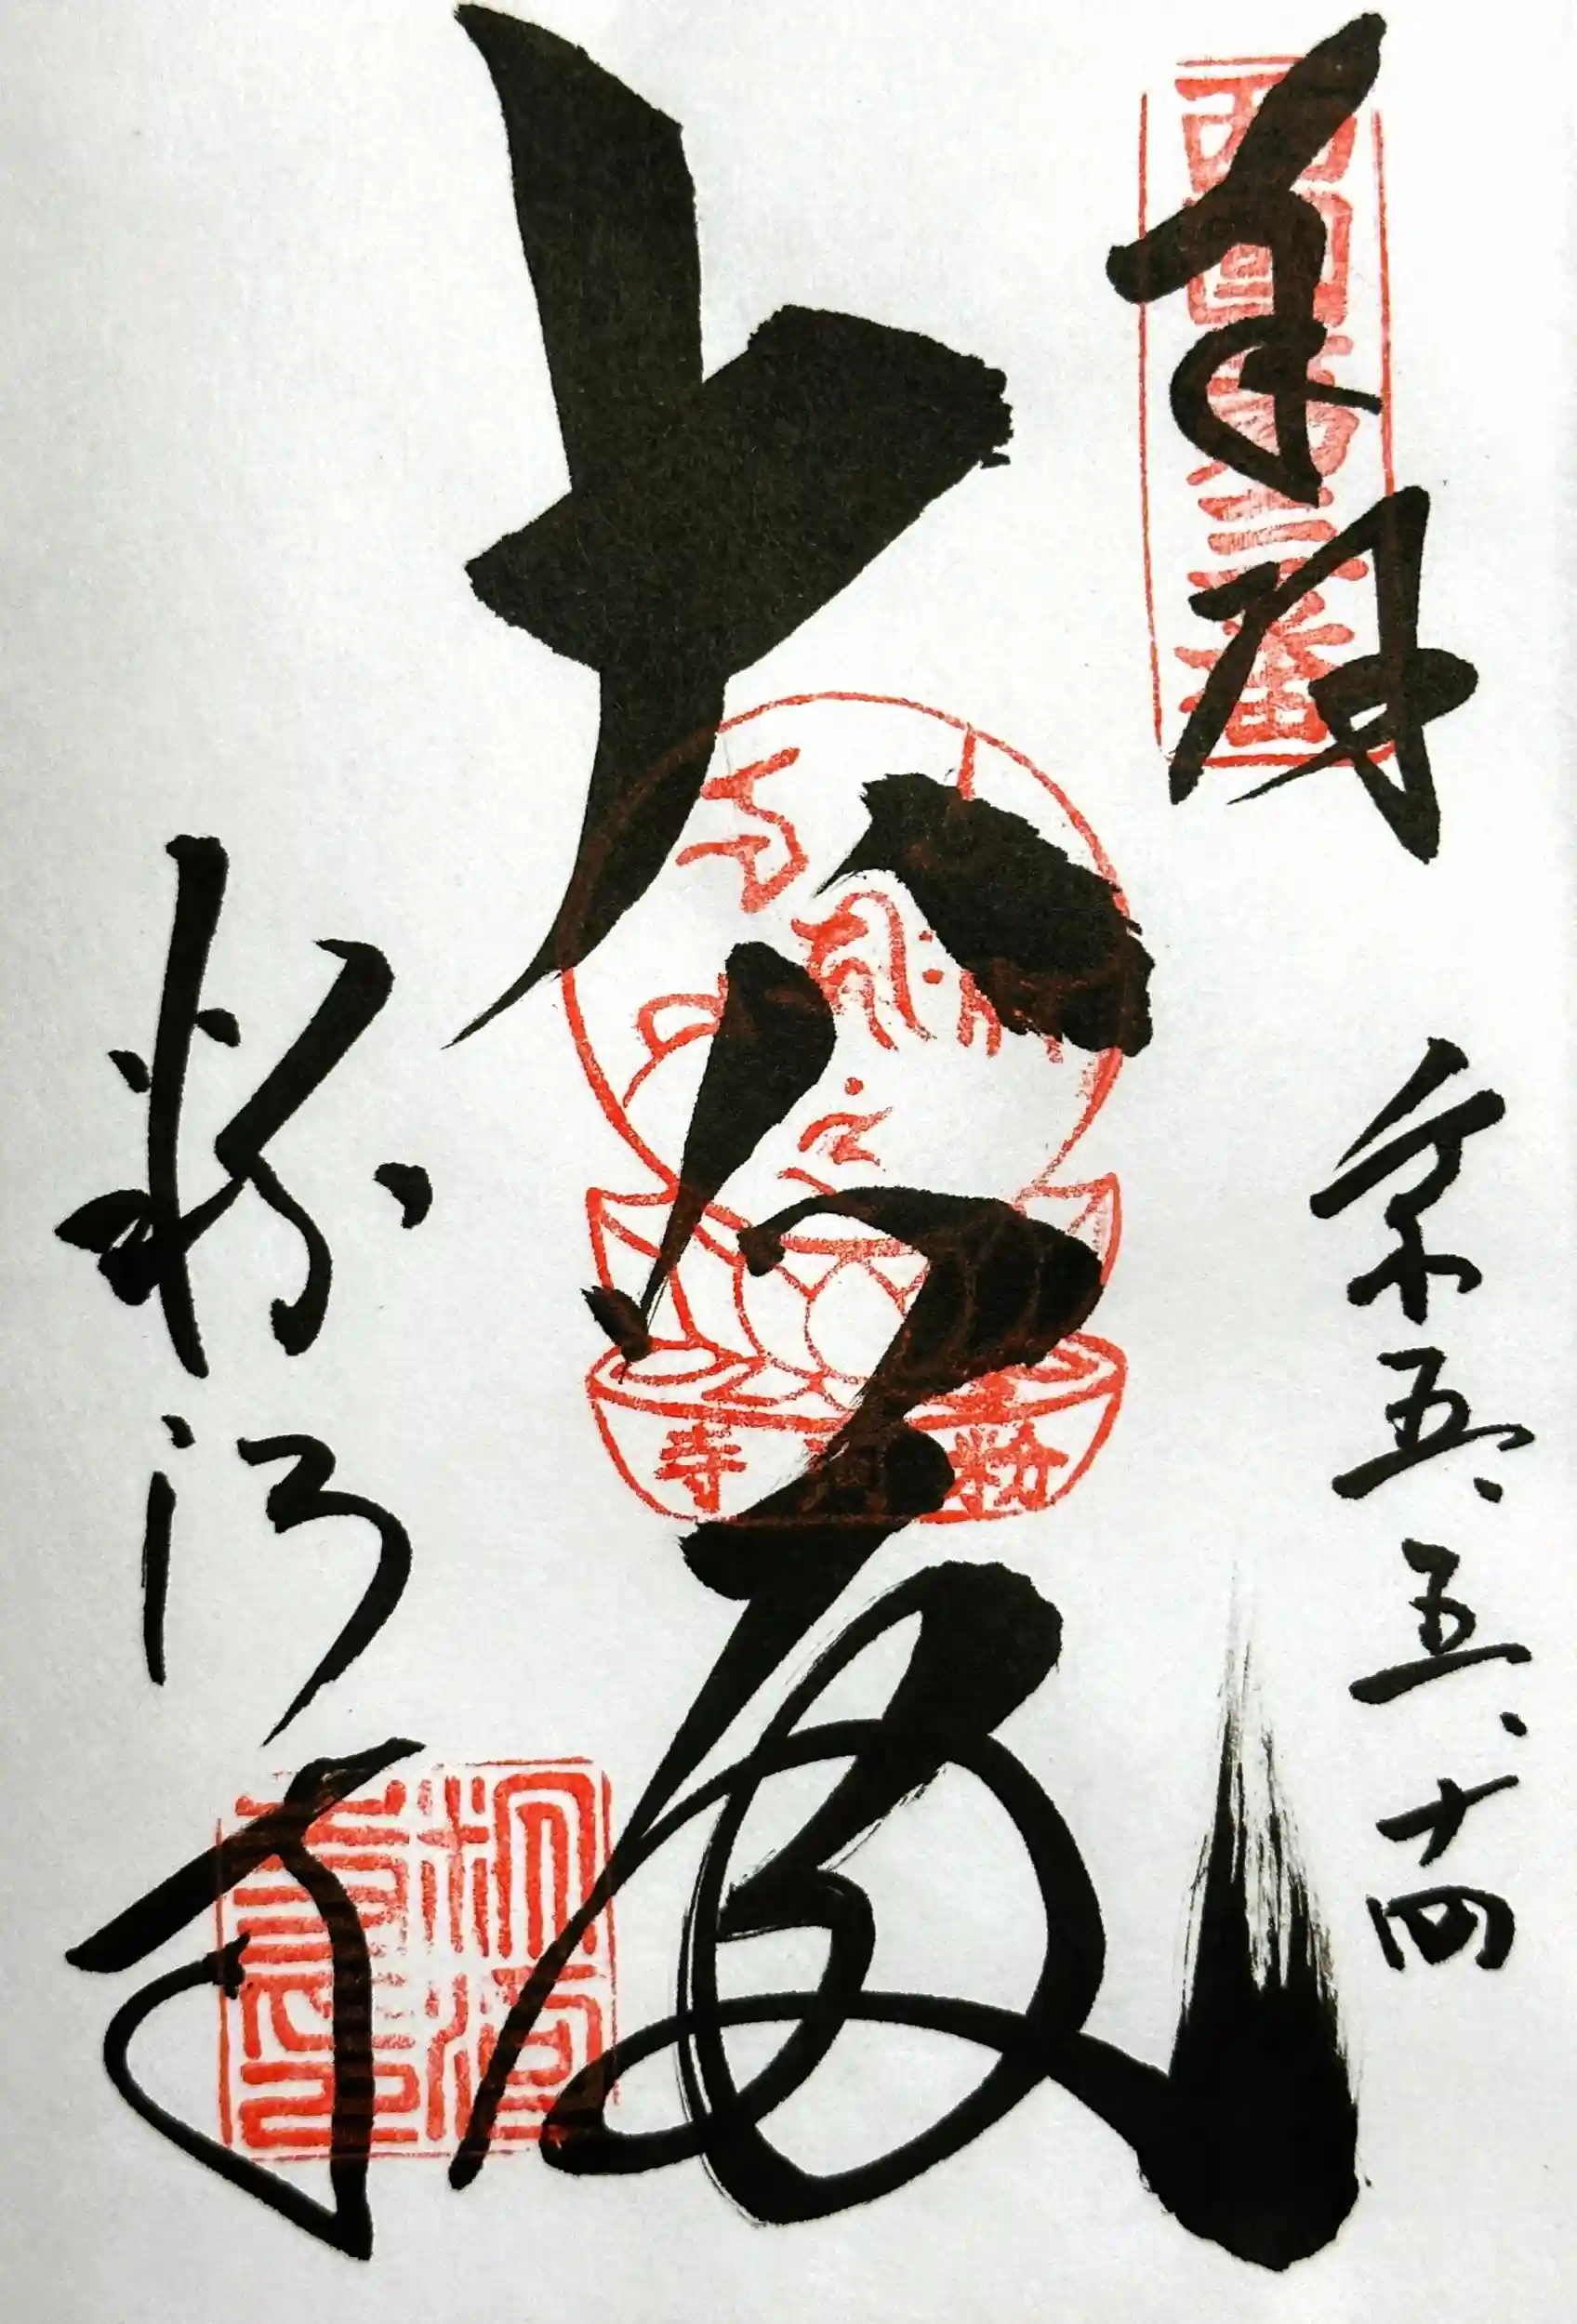 奉拝
令五、五、十四
西国第三番
大悲殿
粉河寺
粉河寺